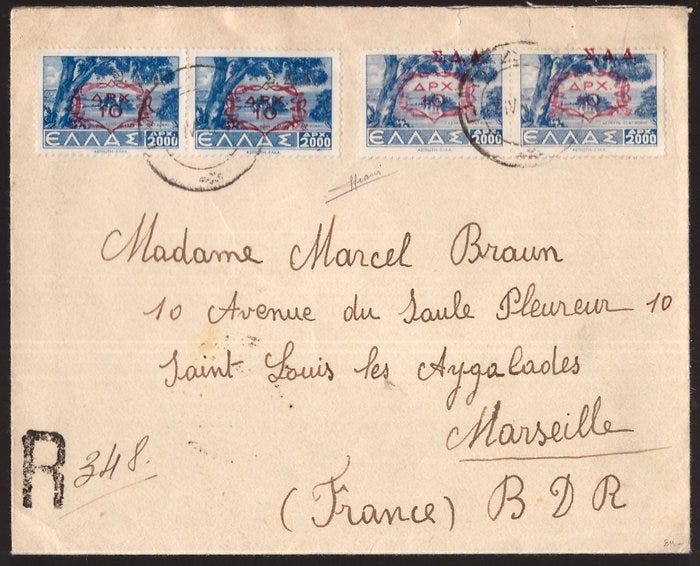 Σ.Δ.Δ Σ.Δ.Δ Σ.Δ.Δ Σ.Δ.Δ
ΔΡΧ. ΔΡΧ. ΔΡΧ. ΔΡΧ.
10 10 10 10
ΕΛΛΑΣ ΔΡΧ. 2000 ΕΛΛΑΣ ΔΡΧ. 2000 ΕΛΛΑΣ ΔΡΧ. 2000 ΕΛΛΑΣ ΔΡΧ. 2000
Madame Marcel Braun
10 Avenue du Saule Pleureur 10
Saint Louis les Aygalades
Marseille
R 348.
(France) B D R